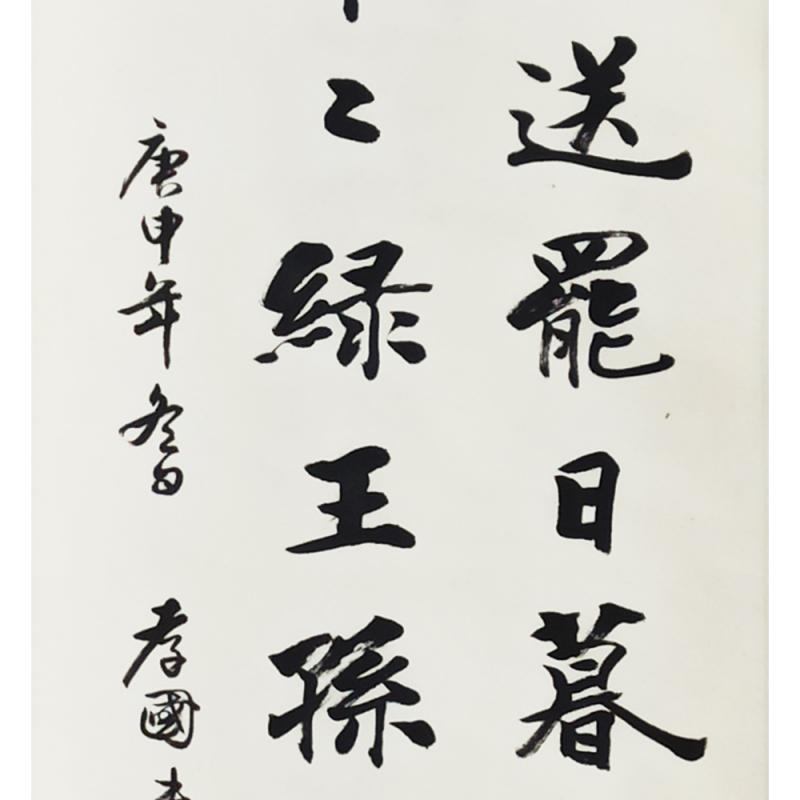 送罷日暮
〻緑王孫
庚申年冬日 孝國